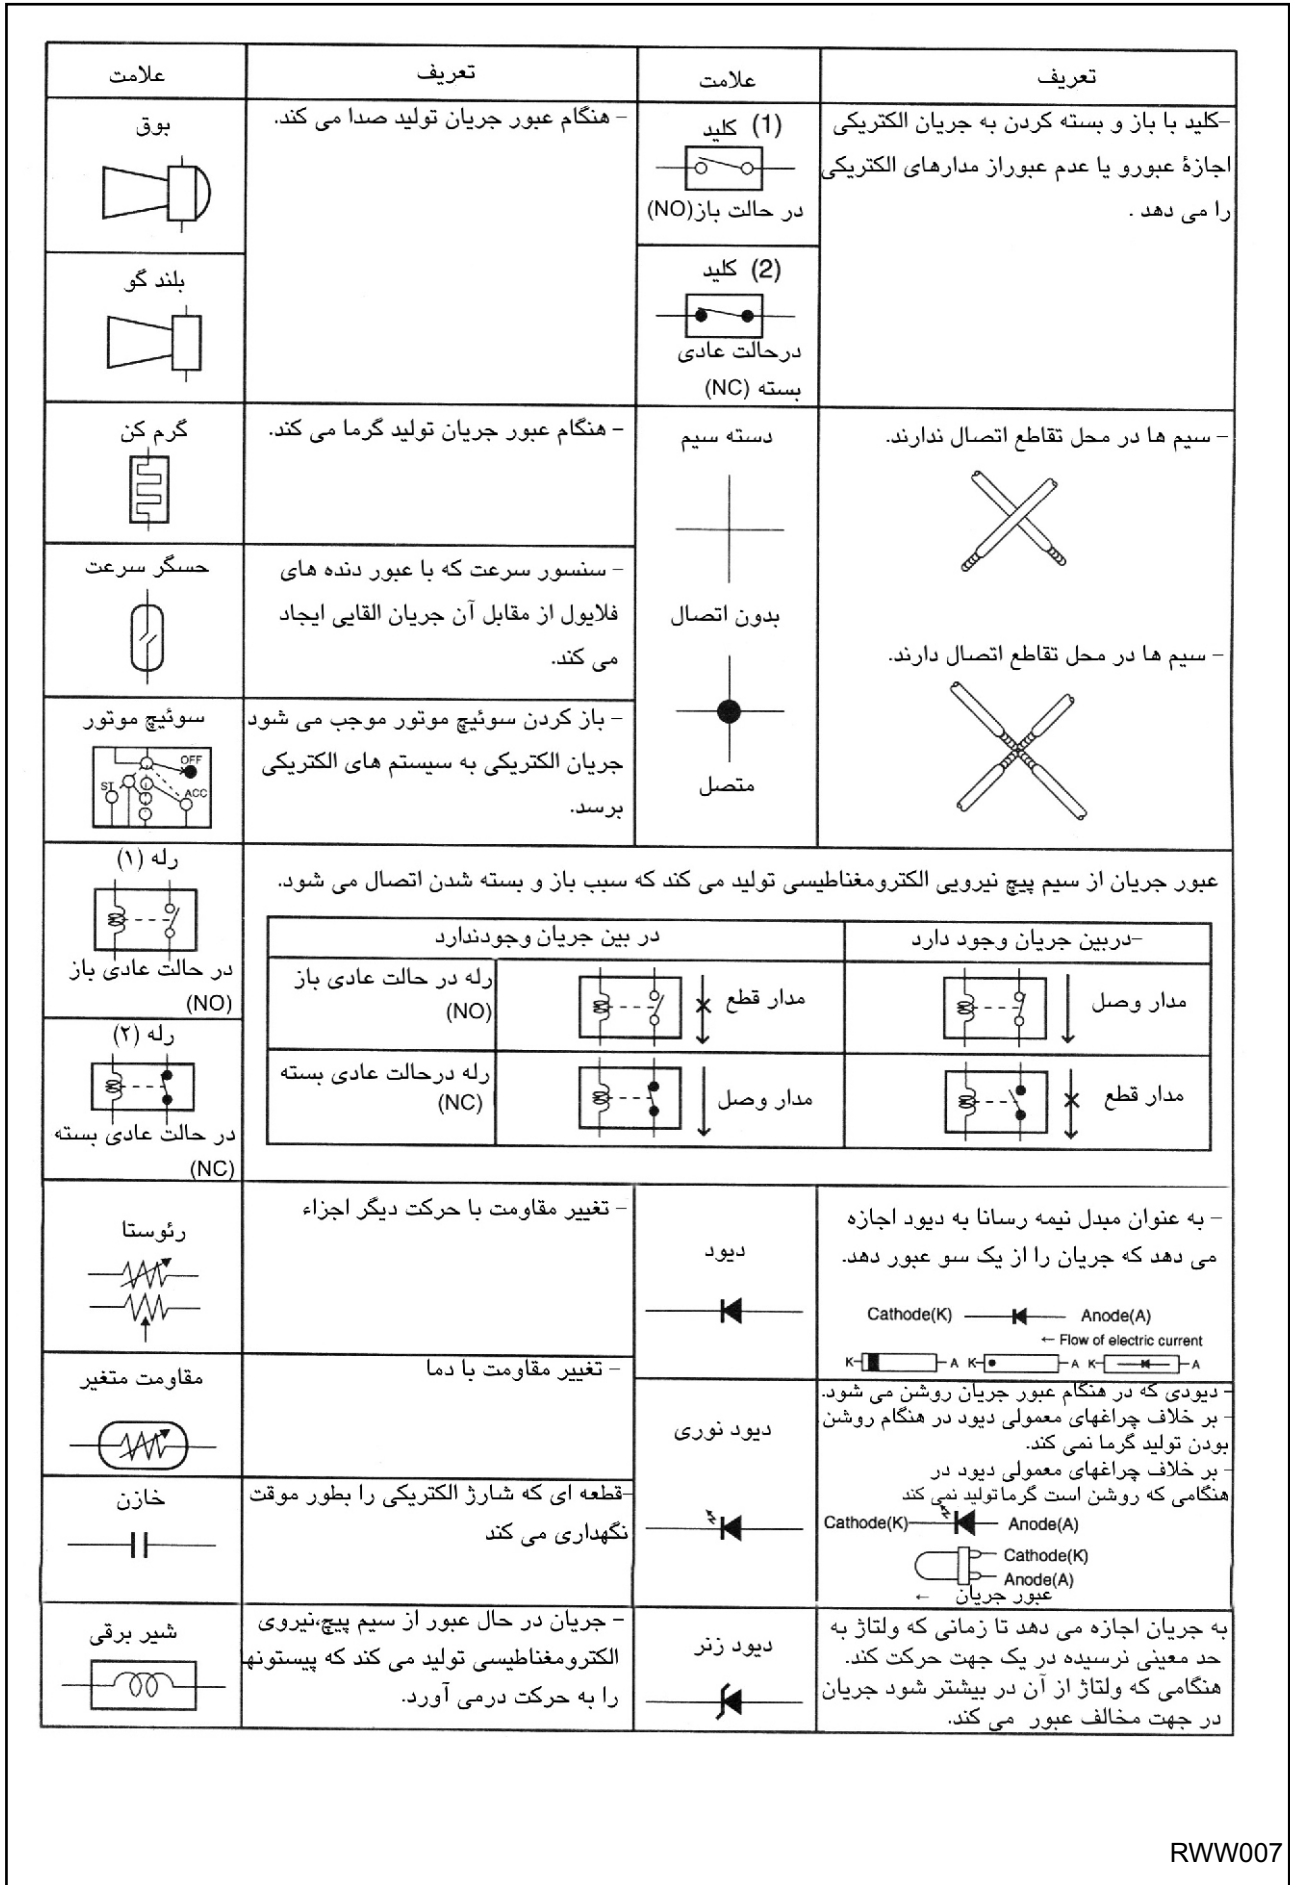 علامت
تعریف
علامت
تعریف
(1) کلید
در حالت باز(NO)
-کلید با باز و بسته کردن به جریان الکتریکی
اجازهٔ عبورو یا عدم عبوراز مدارهای الکتریکی
را می دهد .
(2) کلید
درحالت عادی
بسته (NC)
بوق
- هنگام عبور جریان تولید صدا می کند.
بلند گو
گرم کن
- هنگام عبور جریان تولید گرما می کند.
دسته سیم
بدون اتصال
متصل
- سیم ها در محل تقاطع اتصال ندارند.
- سیم ها در محل تقاطع اتصال دارند.
حسگر سرعت
- سنسور سرعت که با عبور دنده های
فلایول از مقابل آن جریان القایی ایجاد
می کند.
سوئیچ موتور
OFF
ST
ACC
- باز کردن سوئیچ موتور موجب می شود
جریان الکتریکی به سیستم های الکتریکی
برسد.
رله (۱)
در حالت عادی باز
(NO)
رله (۲)
در حالت عادی بسته
(NC)
عبور جریان از سیم پیچ نیرویی الکترومغناطیسی تولید می کند که سبب باز و بسته شدن اتصال می شود.
در بین جریان وجودندارد
-دربین جریان وجود دارد
رله در حالت عادی باز
(NO)
مدار قطع
مدار وصل
رله درحالت عادی بسته
(NC)
مدار وصل
مدار قطع
رئوستا
- تغییر مقاومت با حرکت دیگر اجزاء
دیود
- به عنوان مبدل نیمه رسانا به دیود اجازه
می دهد که جریان را از یک سو عبور دهد.
Cathode(K) Anode(A)
← Flow of electric current
K A K A K A
مقاومت متغیر
- تغییر مقاومت با دما
دیود نوری
- دیودی که در هنگام عبور جریان روشن می شود.
- بر خلاف چراغهای معمولی دیود در هنگام روشن
بودن تولید گرما نمی کند.
- بر خلاف چراغهای معمولی دیود در
هنگامی که روشن است گرما تولید نمی کند
Cathode(K) Anode(A)
Cathode(K)
Anode(A)
عبور جریان ←
خازن
-قطعه ای که شارژ الکتریکی را بطور موقت
نگهداری می کند
شیر برقی
- جریان در حال عبور از سیم پیچ،نیروی
الکترومغناطیسی تولید می کند که پیستونها
را به حرکت درمی آورد.
دیود زنر
به جریان اجازه می دهد تا زمانی که ولتاژ به
حد معینی نرسیده در یک جهت حرکت کند.
هنگامی که ولتاژ از آن در بیشتر شود جریان
در جهت مخالف عبور می کند.
RWW007